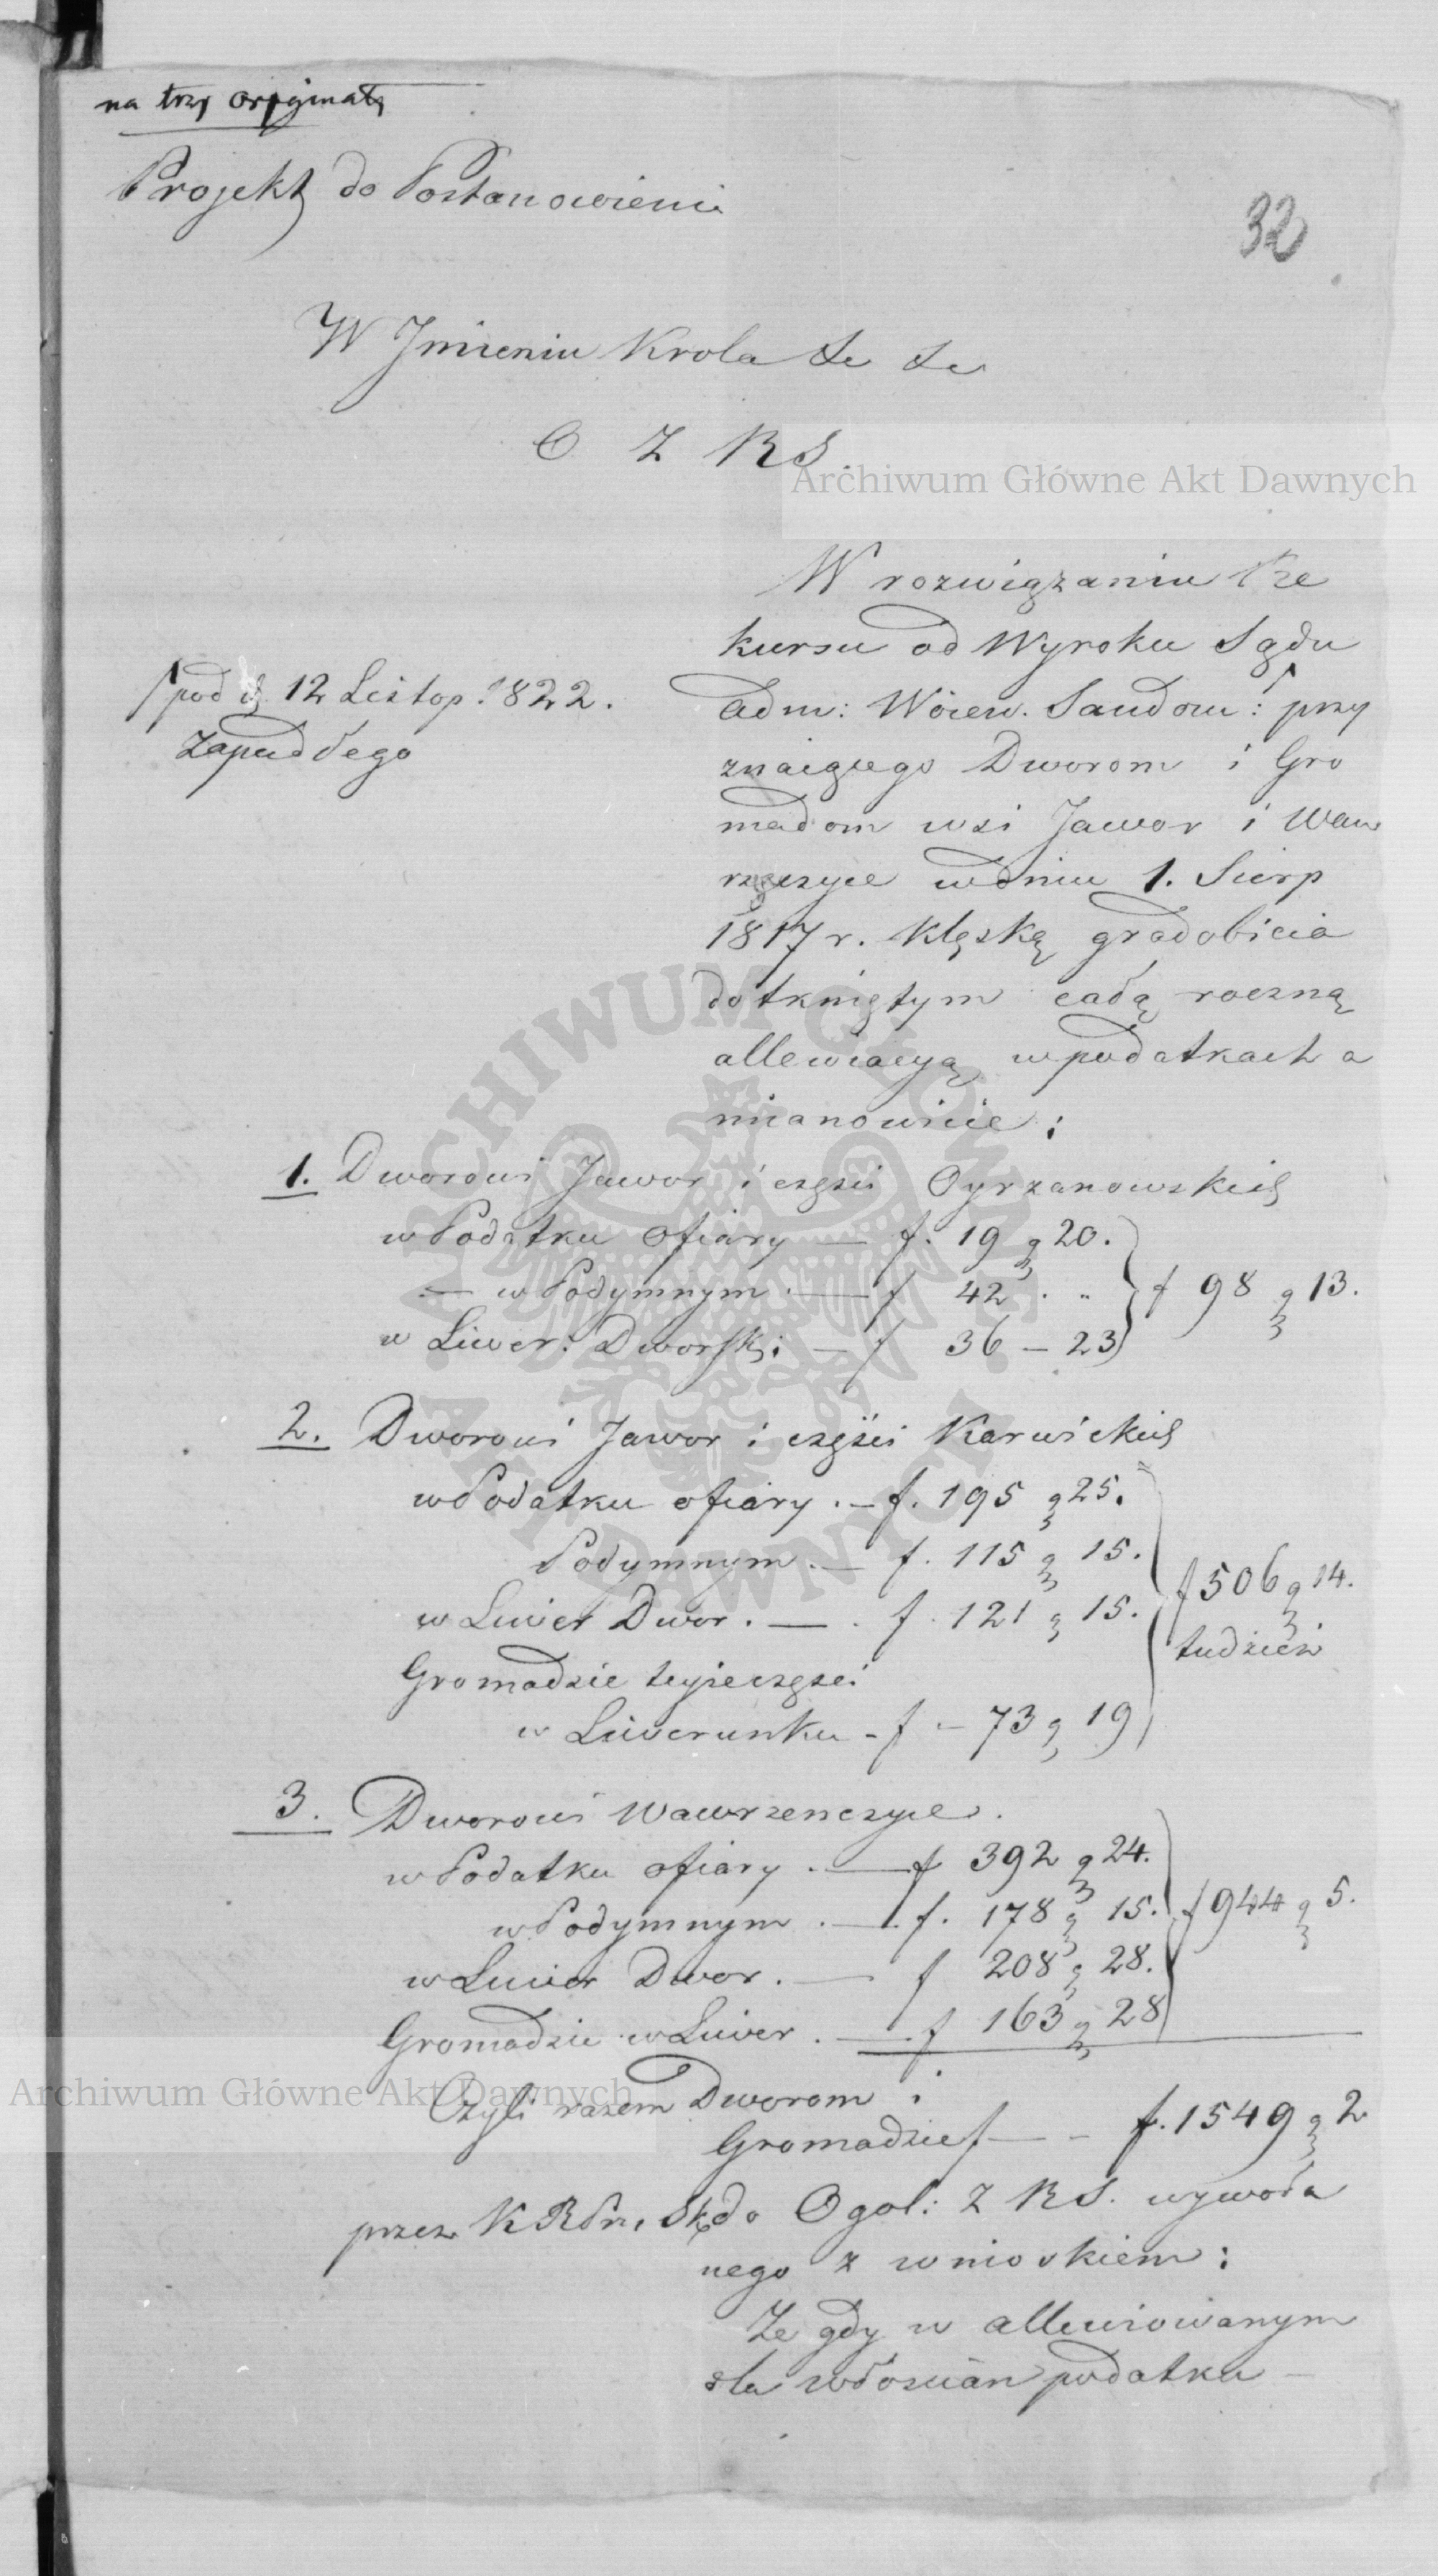 na trzy oryginały
Projekt do Postanowienia
32
W Jmieniu Krola &c &c
O Z RS.
Archiwum Główne Akt Dawnych
W rozwiązaniu Re
kursu od Wyroku Sądu
/ pod d. 12 Listop. 1822.
zapadłego
Adm: Woiew. Sandom: / przy
znaiącego Dworom i Gro
madom wsi Jawor i Waw
rzęczyce w dniu 1. Sierp
1817 r. klęską gradobicia
dotkniętym całą roczną
allewiacyą w podatkach a
mianowicie:
1. Dworowi Jawor i części Oyrzanowskich
w Podatku Ofiary — f. 19 g 20.
— w Podymnym — f 42 . "
f 98 g 13.
w Liwer: Dworsk: — f 36 — 23
2. Dworowi Jawor i części Karwickich
w Podatku ofiary . — f. 195 g 25.
Podymnym . — f. 115 g 15.
f 506 g 14.
w Liwer Dwor. — . f. 121 g 15.
tudzież
Gromadzie teyże części
w Liwerunku - f — 73 g 19
3. Dworowi Wawrzenczyce.
w Podatku ofiary . — f 392 g 24.
w Podymnym . — f. 178 g 15.
f 944 g 5.
w Liwer Dwor. — f 208 g 28.
Gromadzie w Liwer . — f 163 g 28
Archiwum Główne Akt Dawnych
Czyli razem Dworom i
Gromadzie / — - f. 1549 g 2
przez K R Pr. i Sk. do Ogol: Z RS. wywoła
nego z wnioskiem:
Ze gdy w allewiowanym
dla włościan podatku —
ARCHIWUM GŁÓWNE AKT DAWNYCH